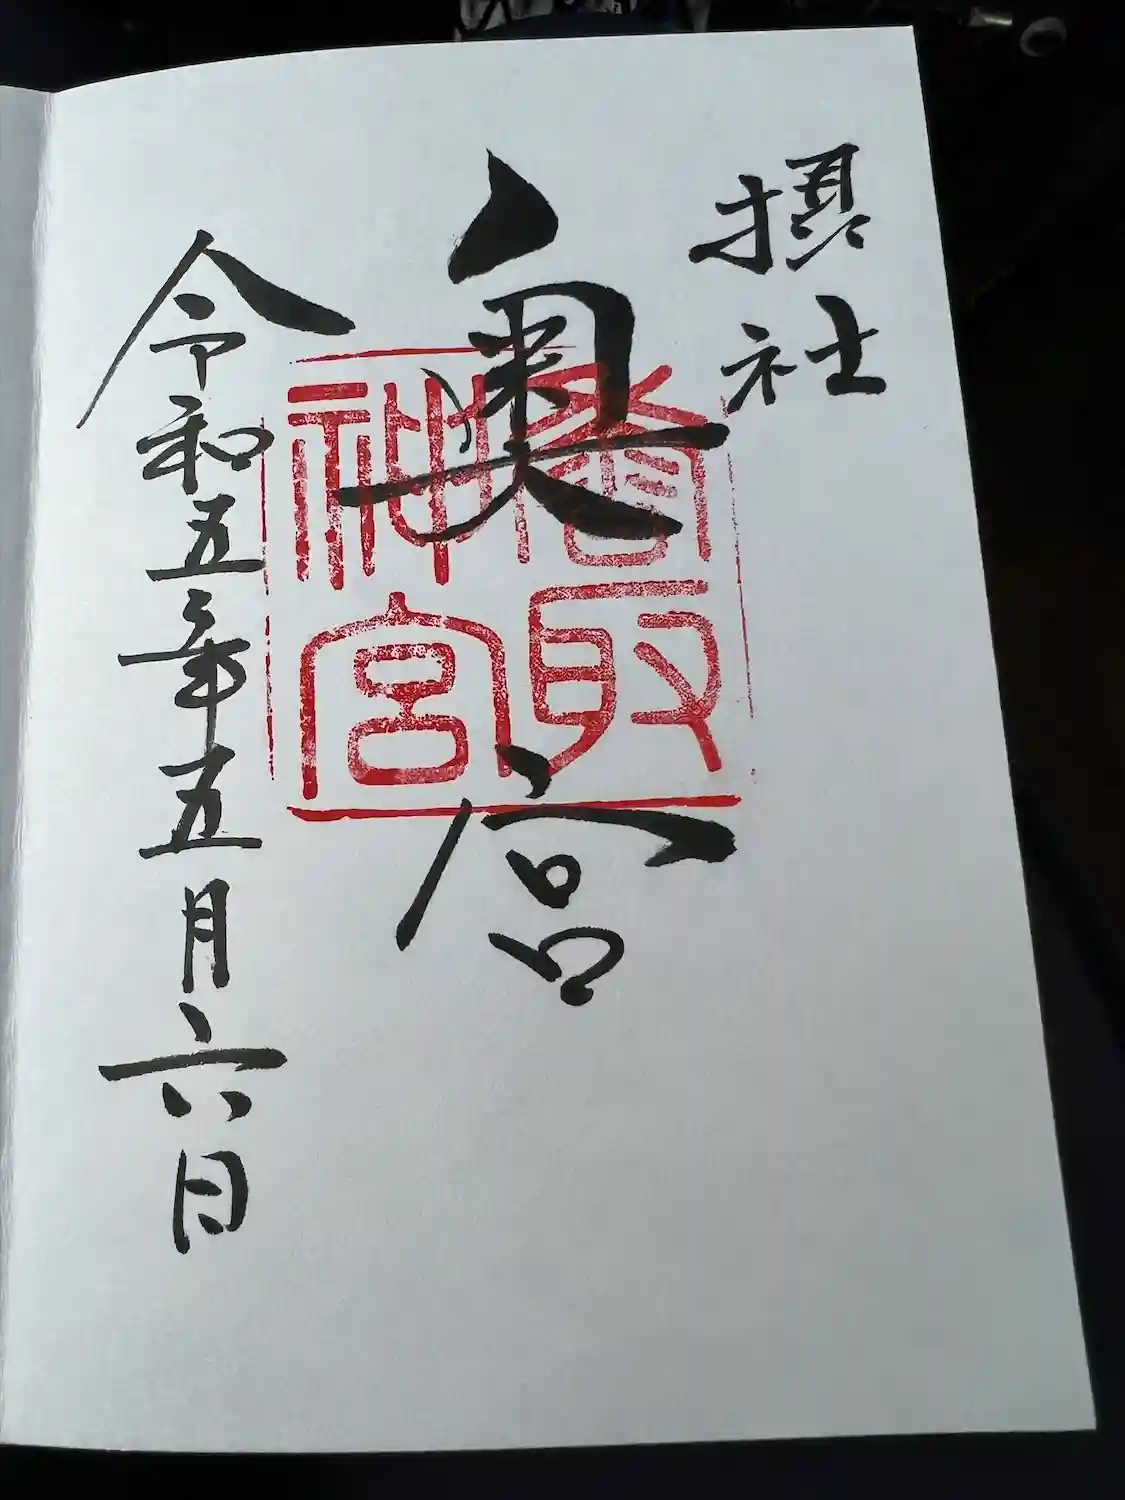 摂社
奥宮
香取
神宮
令和五年五月六日